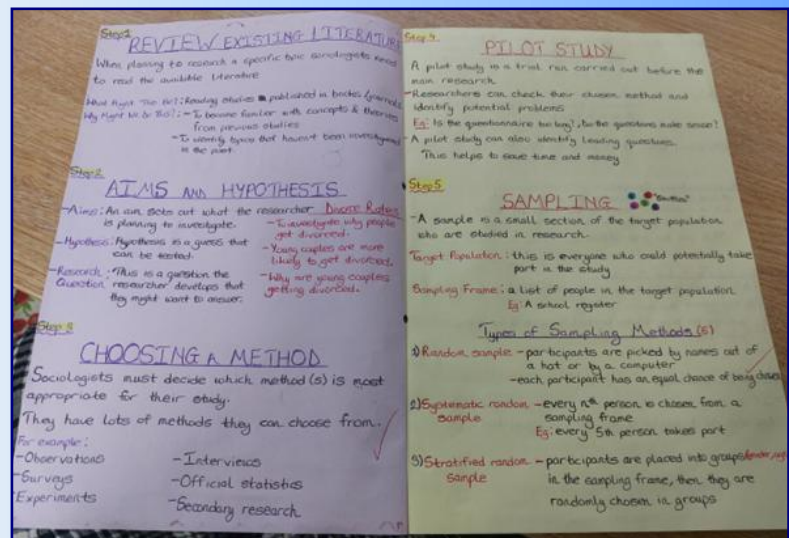 Step 1
REVIEW EXISTING LITERATURE
When planning to research a specific topic sociologists need
to read the available literature
What Might This Be?: Reading studies published in books/journals
Why Might We Do This?: - To become familiar with concepts & theories
from previous studies
- To identify topics that haven't been investigated
in the past.
Step 2
AIMS AND HYPOTHESIS
- Aims: An aim sets out what the researcher
is planning to investigate.
- Hypothesis: Hypothesis is a guess that
can be tested.
- Research Question: This is a question the
researcher develops that
they might want to answer.
Divorce Rates
- To investigate why people
get divorced.
- Young couples are more
likely to get divorced.
- Why are young couples
getting divorced.
Step 3
CHOOSING A METHOD
Sociologists must decide which method(s) is most
appropriate for their study.
They have lots of methods they can choose from.
For example:
- Observations
- Surveys
- Experiments
- Interviews
- Official statistics
- Secondary research
Step 4
PILOT STUDY
A pilot study is a trial run carried out before the
main research
- Researchers can check their chosen method and
identify potential problems
Eg: Is the questionnaire too long?, Do the questions make sense?
- A pilot study can also identify leading questions.
This helps to save time and money
Step 5
SAMPLING
- A sample is a small section of the target population
who are studied in research.
Target Population: this is everyone who could potentially take
part in the study
Sampling Frame: a list of people in the target population
Eg: A school register
Types of Sampling Methods (5)
1) Random sample - participants are picked by names out of
a hat or by a computer
- each participant has an equal chance of being chosen
2) Systematic random sample - every nth person is chosen from a
sampling frame
Eg: every 5th person takes part
3) Stratified random sample - participants are placed into groups
in the sampling frame, then they are
randomly chosen in groups